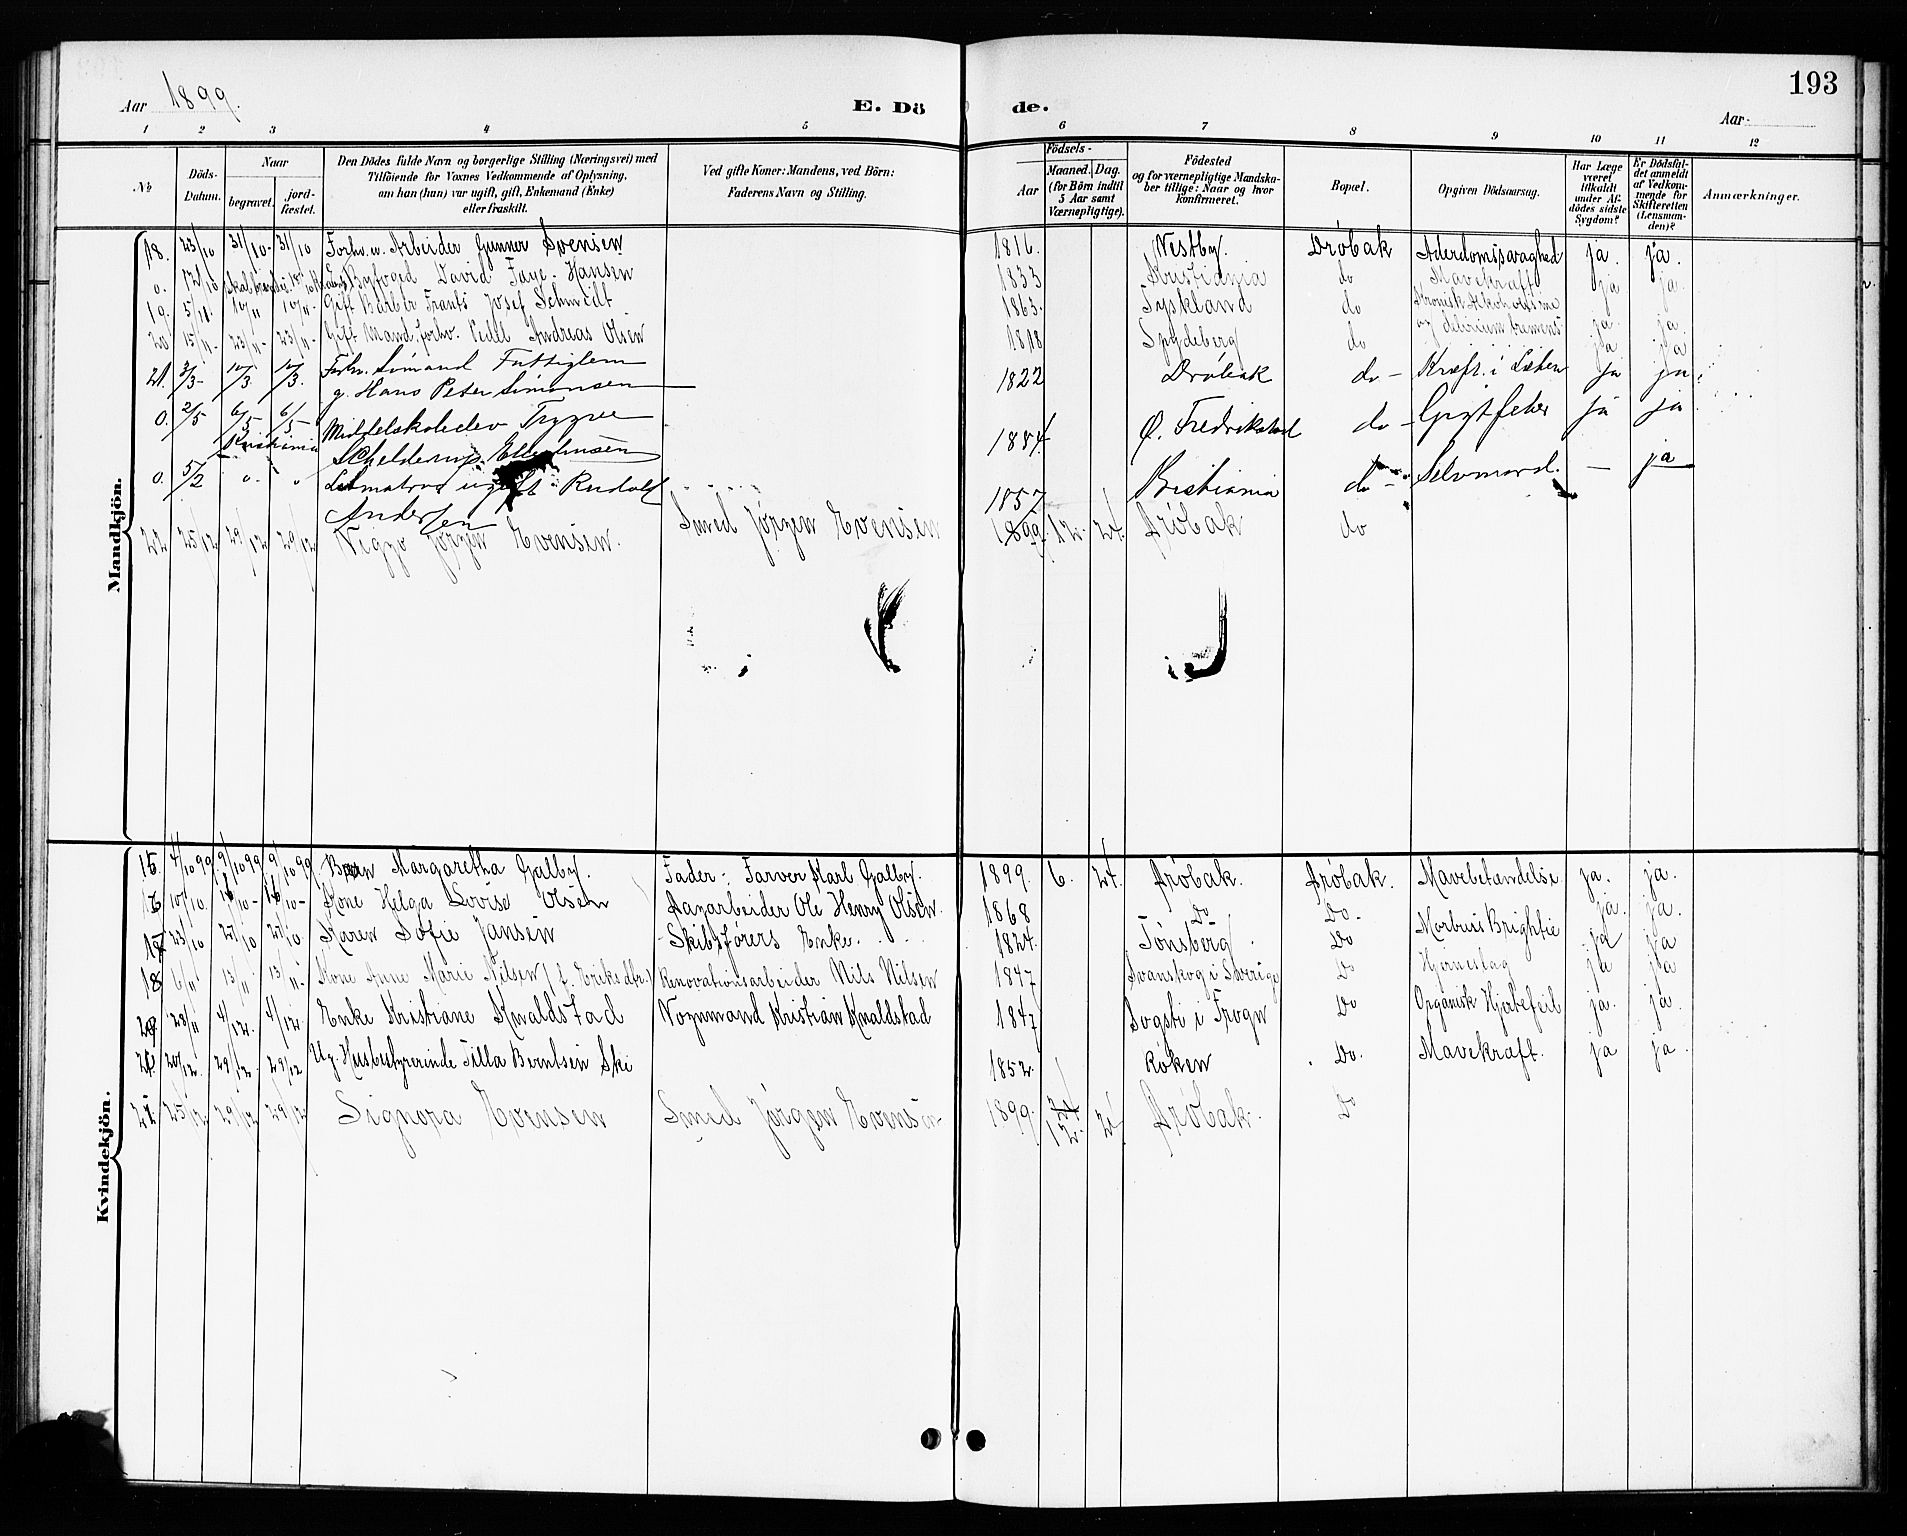 193
Aar 1899.
E. Dö de.
Aar
1 2 3 4 5 6 7 8 9 10 11 12
№
Döds-Datum.
Naar
begravet.
jord-fæstet.
Den Dödes fulde Navn og borgerlige Stilling (Næringsvei) med
Tilföiende for Voxnes Vedkommende af Oplysning,
om han (hun) var ugift, gift, Enkemand (Enke)
eller fraskilt.
Ved gifte Koner: Mandens, ved Börn:
Faderens Navn og Stilling.
Födsels-
Aar
Maaned. Dag.
(for Börn indtil
5 Aar samt
Værnepligtige).
Födested
og for værnepligtige Mandska-
ber tillige: Naar og hvor
konfirmeret.
Bopæl.
Opgiven Dödsaarsag.
Har Læge
været
tilkaldt
under Af-
dödes sidste
Sygdom?
Er Dödsfal-
det anmeldt
af Vedkom-
mende for
Skifteretten
(Lensman-
den)?
Anmærkninger.
Mandkjön.
18. 23/10 31/10- 31/10 Forhv. Arbeider Gunnar Svensen 1816. Vestby. Dröbak Alderdomssvaghed ja. ja.
0. 12/10 Byfoged David Faye-Hansen 1833 Kristiania do Mavekræft ja ja.
19. 5/11. 10/11 10/11- Gift Barber Frants Josef Schmidt 1863. Tyskland do Kronisk Alkoholisme
og delirium tremens ja. ja.
20 15/11- 23/11- 23/11- Gift Mand, forhv. Pedel Andreas Olsen 1818 Spydeberg do ja ja
21. 3/3- 10/3 10/3. Forhv. Sömand Fattiglem
g. Hans Peter Simonsen 1822 Dröbak do- Kræft i Leben ja ja.
0. 2/5 6/5 6/5- Middelskoleelev Trygve
Kristiania
Schelderup 1884 Ø. Fredrikstad do- Gigtfeber ja ja
0. 5/2 0. 0 Letmatros ugift Rudolf
Andersen 1857 Kristiania do- Selvmord. - ja
22 25/12 29/12 29/12 Viggo Jörgen Evensen. Smed Jørgen Evensen 1899. 12. 24. Dröbak do
Kvindekjön.
15. 4/10 99 9/10 99 9/10 99 Barn Margaretha Galby. Fader: Farver Karl Galby. 1899. 6. 24. Dröbak. Dröbak. Mavebetændelse ja. ja.
16 10/10. 16/10- 16/10- Kone Helga Lovise Olsen Dagarbeider Ole Henry Olsen. 1868 Do Do. ja. ja.
17 23/10 27/10 27/10. Karen Sofie Jansen -Skibsførers Enke. 1824. Tønsberg. Do Morbus Brightii ja ja
18 6/11 13/11 13/11- Kone Anne Marie Nilsen (f. Eriksdtr.) Renovationsarbeider Nils Nilsen 1847 Svanskog i Sverige Do Hjerneslag ja ja
28/11 4/12. 4/12. Enke Kristiane Knaldstad Vognmand Kristian Knaldstad 1847 Sogsti i Frogn Do Organisk Hjertefeil ja. ja.
20/12. 29/12. 29/12 Ug. Husbestyrerinde Tilla Berntsen Ski 1852. Røken Do. Mavekræft. ja ja.
25/12 29/12 29/12. Signora Evensen Smed Jørgen Evensen 1899. 12. 24 Dröbak. Do